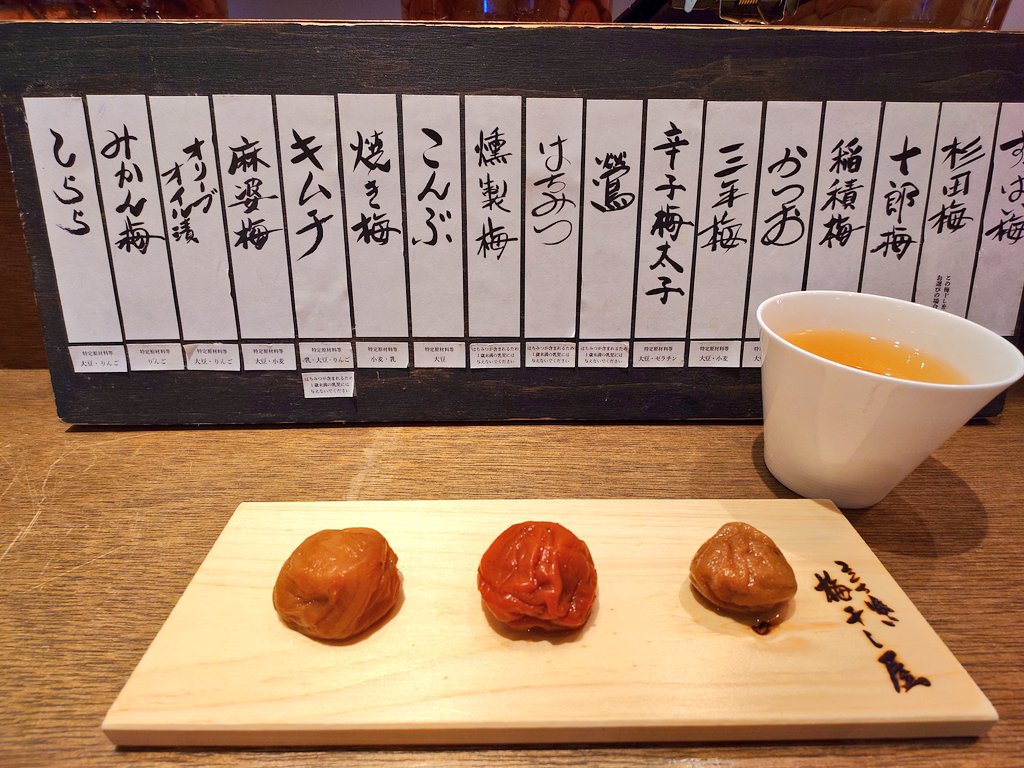 杉田梅
この梅干しを
お選びの場合
十郎梅
稲積梅
かつお
三年梅
特定原材料等
大豆・小麦
辛子梅太子
特定原材料等
大豆・ゼラチン
鶯
はちみつが含まれるため
1歳未満の乳児には
与えないでください
はちみつ
はちみつが含まれるため
1歳未満の乳児には
与えないでください
燻製梅
はちみつが含まれるため
1歳未満の乳児には
与えないでください
こんぶ
特定原材料等
大豆
焼き梅
特定原材料等
小麦・乳
キムチ
特定原材料等
乳・大豆・りんご
はちみつが含まれるため
1歳未満の乳児には
与えないでください
麻婆梅
特定原材料等
大豆・小麦
オリーブ
オイル漬
特定原材料等
大豆・りんご
みかん梅
特定原材料等
りんご
しらら
特定原材料等
大豆・りんご
立ち喰い
梅干し屋